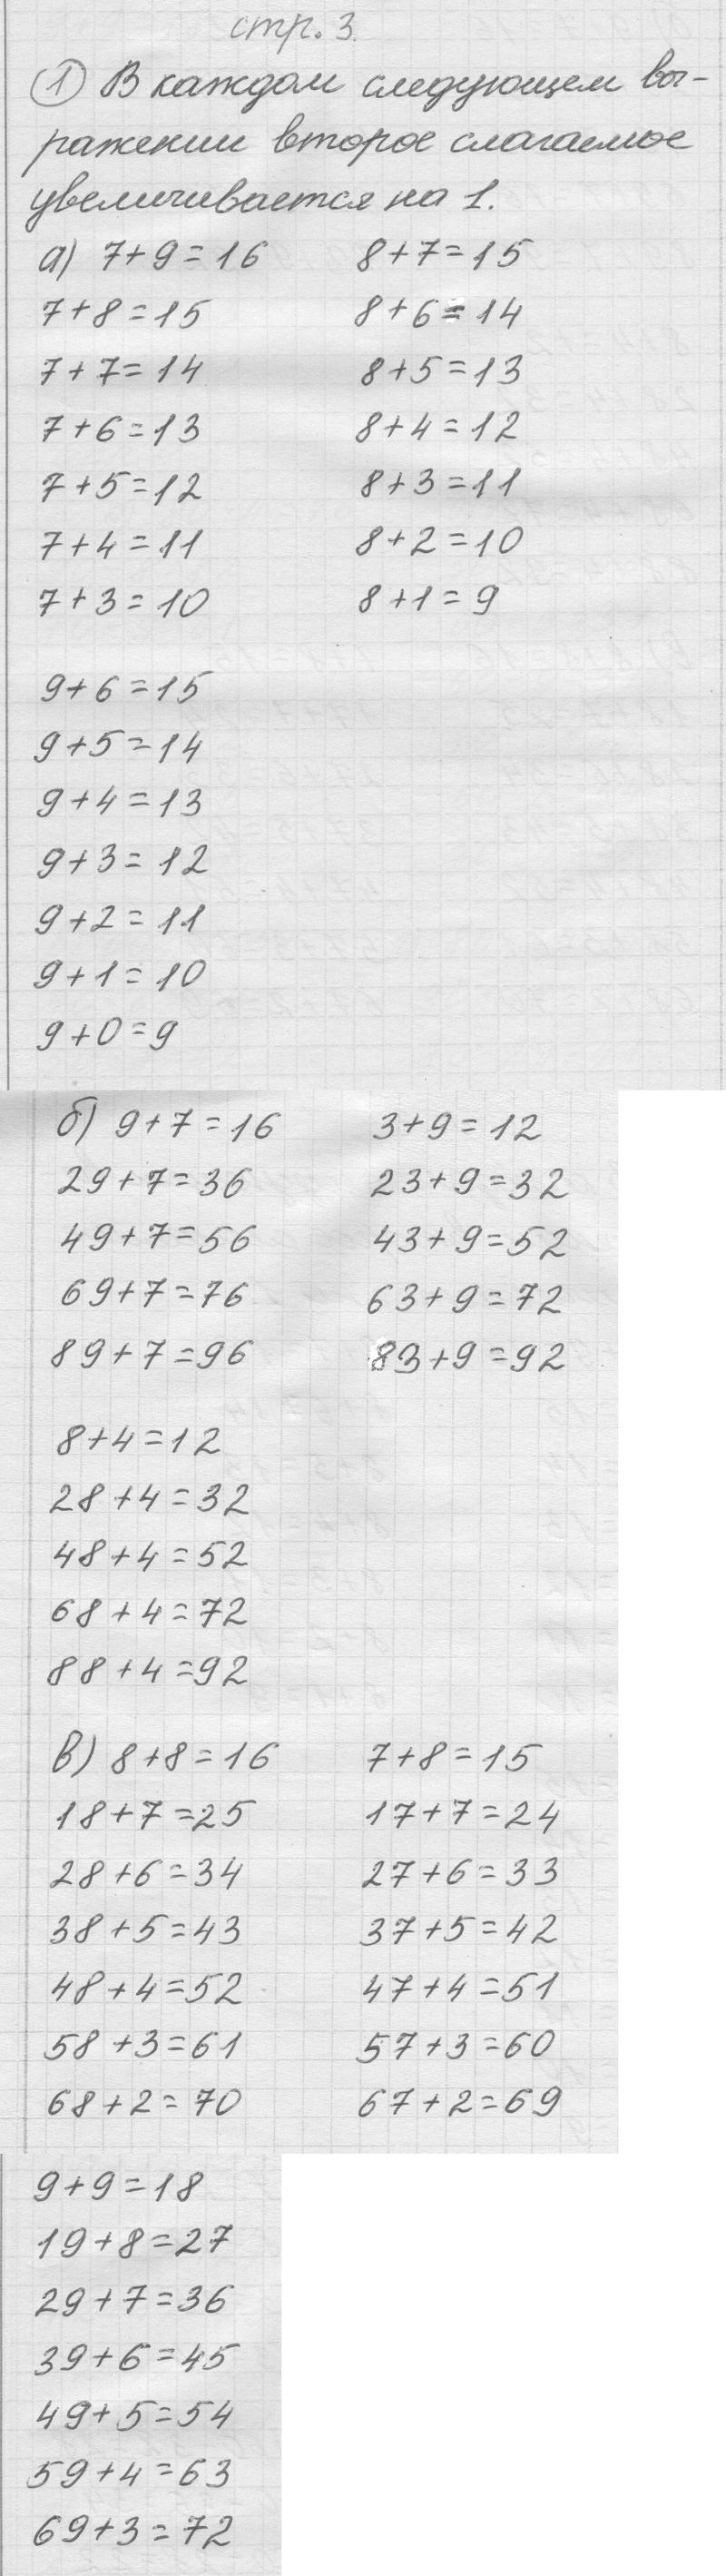 стр. 3.
1 В каждом следующем вы-
ражении второе слагаемое
увеличивается на 1.
а) 7+9=16
7+8=15
7+7=14
7+6=13
7+5=12
7+4=11
7+3=10
8+7=15
8+6=14
8+5=13
8+4=12
8+3=11
8+2=10
8+1=9
9+6=15
9+5=14
9+4=13
9+3=12
9+2=11
9+1=10
9+0=9
б) 9+7=16
29+7=36
49+7=56
69+7=76
89+7=96
3+9=12
23+9=32
43+9=52
63+9=72
83+9=92
8+4=12
28+4=32
48+4=52
68+4=72
88+4=92
в) 8+8=16
18+7=25
28+6=34
38+5=43
48+4=52
58+3=61
68+2=70
7+8=15
17+7=24
27+6=33
37+5=42
47+4=51
57+3=60
67+2=69
9+9=18
19+8=27
29+7=36
39+6=45
49+5=54
59+4=63
69+3=72